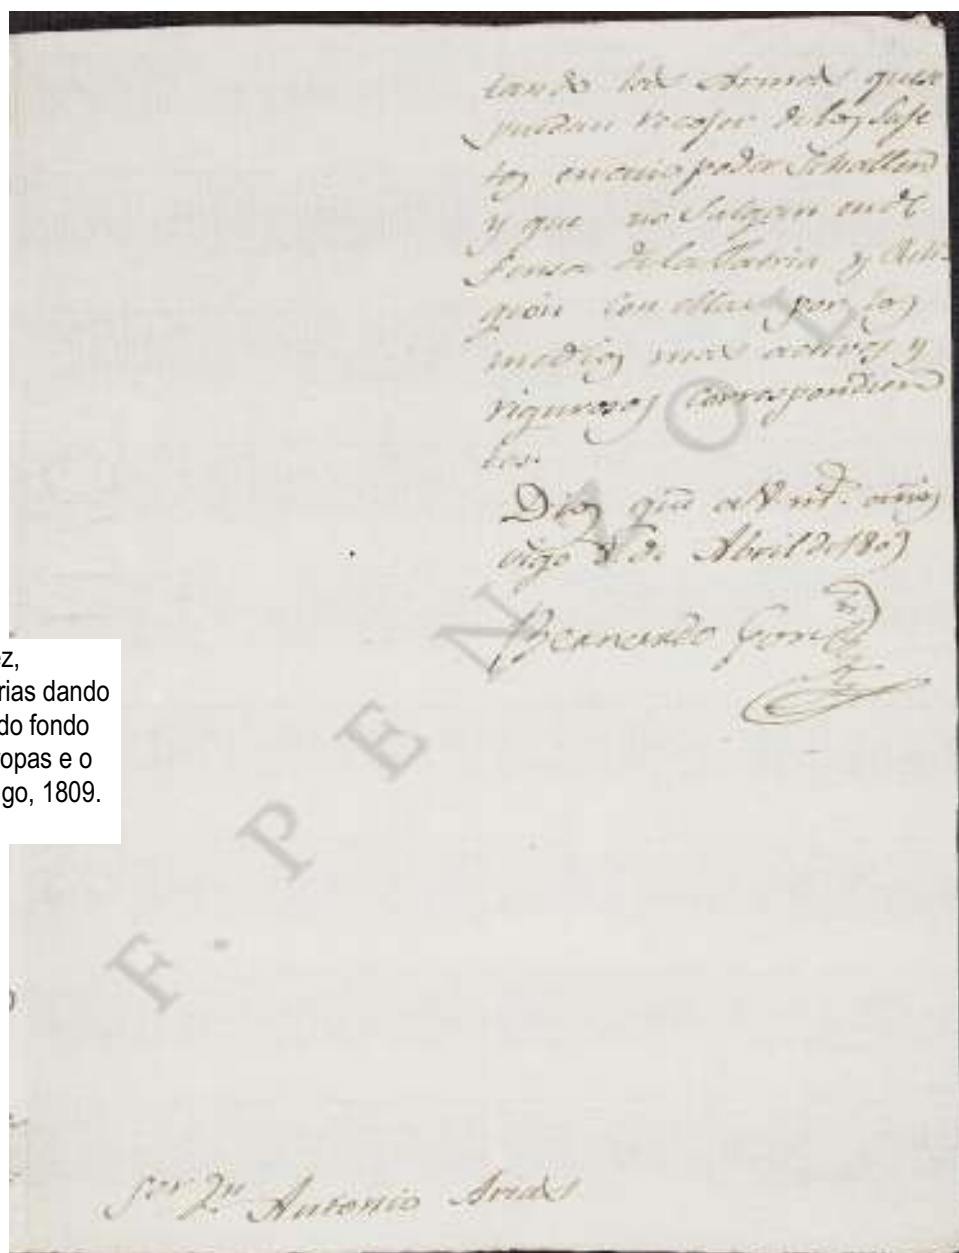 tando las Armas que se
puedan recojer de los Suje
tos en cuio poder se hallen
y que no Salgan en de
fensa de la Patria y Reli-
gion con ellas por los
medios mas activos y
rigurosos correspondien
tes.
Dios gũe a V. m.s años
Vigo 8 de Abril de 1809
Bernardo Gonz
Sor Dn Antonio Arias
ez,
rias dando
do fondo
opas e o
go, 1809.
F. PENZOL